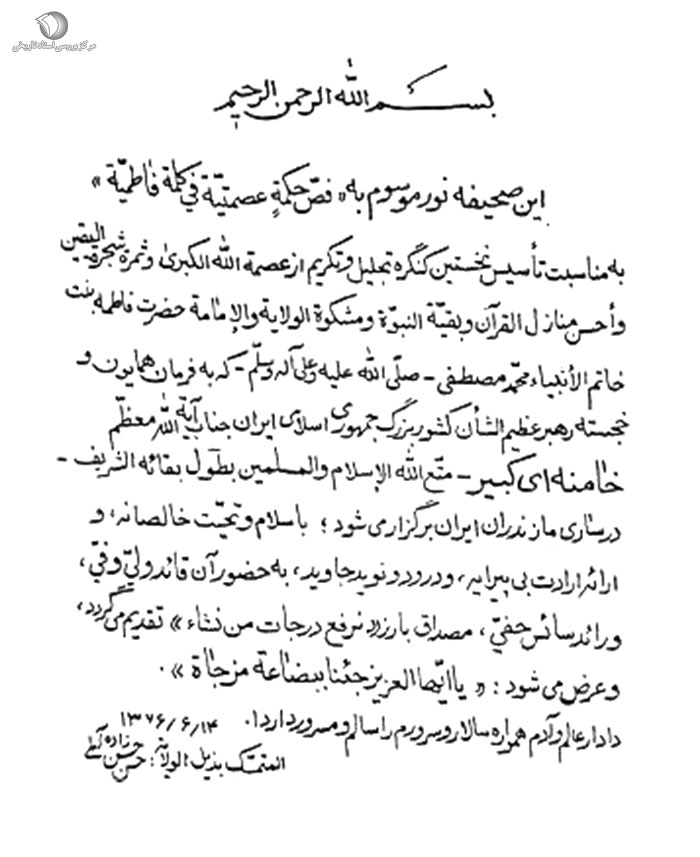 مرکز بررسی اسناد تاریخی
بسم الله الرحمن الرحیم
این صحیفه نور موسوم به «فصّ حکمةٍ عصمتیّة في کلمة فاطمیّة»
به مناسبت تأسیس نخستین کنگره تجلیل و تکریم از عصمة الله الکبریٰ و ثمرة شجرة الیقین
و أحسن منازل القرآن و بقیّة النبوّة و مشکوة الولایة والإمامة حضرت فاطمه بنت
خاتم الأنبیاء محمّد مصطفی - صلّی الله علیه وعلی آله وسلّم - که به فرمان همایون و
خجسته رهبر عظیم الشأن کشور بزرگ جمهوری اسلامی ایران جناب آیة الله معظّم
خامنه‌ای کبیر - متّع الله الإسلام والمسلمین بطول بقائه الشریف -
در ساری مازندران ایران برگزار می شود؛ با سلام و تحیّت خالصانه، و
ارائه ارادت بی پیرایه، و درود و نوید جاوید، به حضور آن قائد ولیّ وفیّ،
و رائد سائس حفیّ، مصداق بارز «نرفع درجات من نشاء» تقدیم می گردد،
و عرض می شود: «یا ایّها العزیز جئنا ببضاعة مزجاة».
دادار عالم و آدم همواره سالار و سرورم را سالم و مسرور دارد.
۱۳۷۶/۶/۱۴
المتمسّک بذیل الولایة: حسن حسن زاده آملی